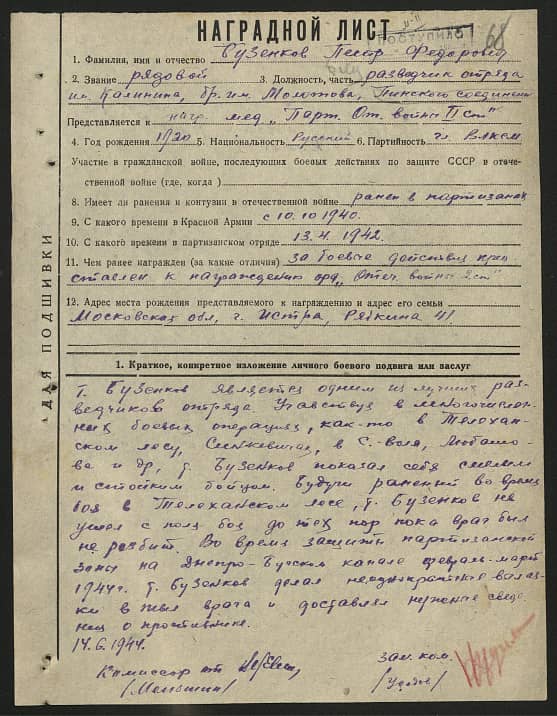 НАГРАДНОЙ ЛИСТ
ПОСТУПИЛО
68
1. Фамилия, имя и отчество Бузенков Петр Федорович
2. Звание рядовой 3. Должность, часть разведчик отряда
им. Калинина, бр. им. Молотова, Пинского соединен.
Представляется к нагр. мед. "Парт. От. войны II ст"
4. Год рождения 1920 5. Национальность Русский 6. Партийность чл. ВЛКСМ
Участие в гражданской войне, последующих боевых действиях по защите СССР в отече-
ственной войне (где, когда)
8. Имеет ли ранения и контузии в отечественной войне ранен в партизанах
9. С какого времени в Красной Армии с 10.10 1940.
10. С какого времени в партизанском отряде 13.4.1942.
11. Чем ранее награжден (за какие отличия) за боевые действия пред
ставлен к награждению орд. "Отеч. войны 2 ст"
12. Адрес места рождения представляемого к награждению и адрес его семьи
Московская обл, г. Истра, Рябкина 41
ДЛЯ ПОДШИВКИ
1. Краткое, конкретное изложение личного боевого подвига или заслуг
т. Бузенков является одним из лучших раз-
ведчиков отряда. Участвуя в многочислен-
ных боевых операциях, как-то в Телехан-
ском лесу, Синкевичах, в С-воля, Любашо-
ва и др, т. Бузенков показал себя смелым
и стойким бойцом. Будучи ранений во время
боя в Телеханском лесе, т. Бузенков не
ушел с поля боя до тех пор пока враг был
не разбит. Во время защиты партизанской
зоны на Днепро-Бугском канале февраль-март
1944г. т. Бузенков делал неоднократные вылаз-
ки в тыл врага и доставлял нужные сведе
ния о противнике.
14.6.1944.
Комиссар отр
зам. ком.